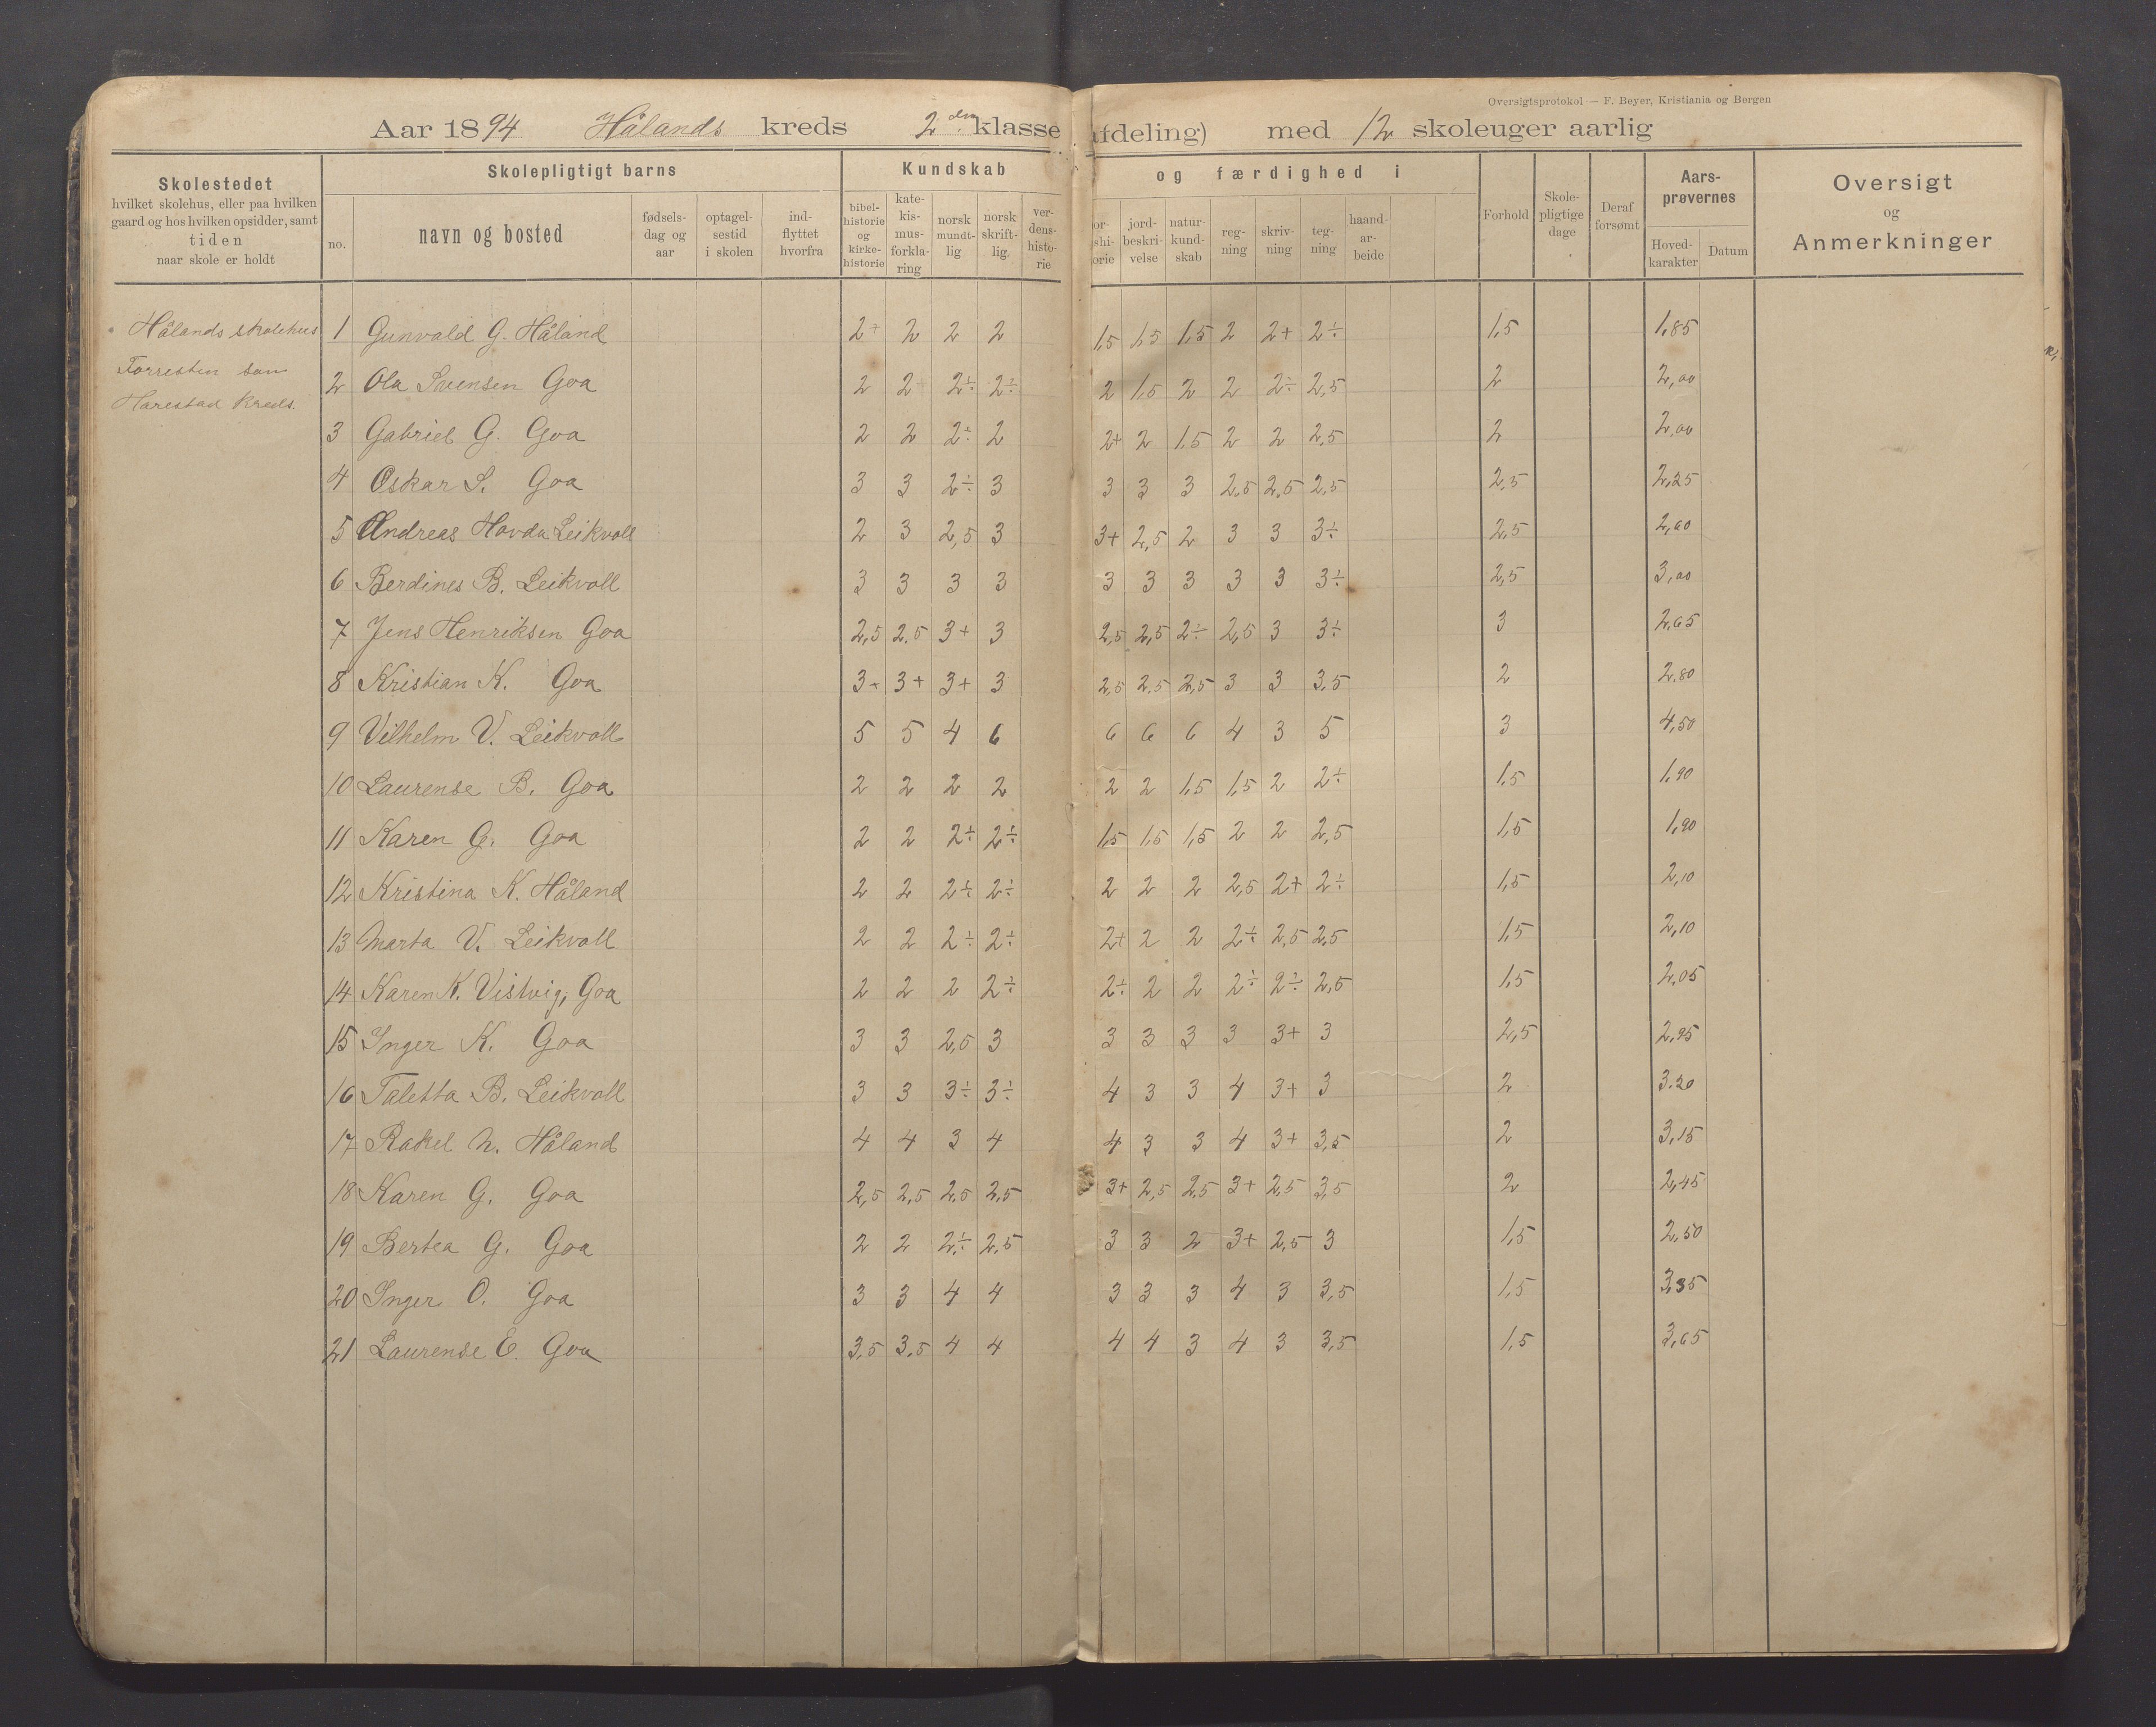 Oversigtsprotokol — F. Beyer, Kristiania og Bergen
Aar 1894 Hålands kreds 2den klasse afdeling) med 12 skoleuger aarlig
Skolestedet
hvilket skolehus, eller paa hvilken
gaard og hos hvilken opsidder, samt
tiden
naar skole er holdt
Skolepligtigt barns
no.
navn og bosted
fødsels-
dag og
aar
optagel-
sestid
i skolen
ind-
flyttet
hvorfra
Kundskab og færdighed i
bibel-
historie
og
kirke-
historie
kate-
kis-
mus-
forkla-
ring
norsk
mundt-
lig
norsk
skrift-
lig
ver-
dens-
histo-
rie
or-
shi-
orie
jord-
beskri-
velse
natur-
kund-
skab
reg-
ning
skriv-
ning
teg-
ning
haand-
ar-
beide
Forhold
Skole-
pligtige
dage
Deraf
forsømt
Aars-
prøvernes
Hoved-
karakter
Datum
Oversigt
og
Anmerkninger
Hålands skolehus
Forresten som
Harestad kreds.
1 Gunvald G. Håland 2+ 2 2 2 1,5 1,5 1,5 2 2+ 2÷ 1,5 1,85
2 Ola Svensen Goa 2 2 2÷ 2÷ 2 1,5 2 2 2÷ 2,5 2 2,00
3 Gabriel G. Goa 2 2 2÷ 2 2+ 2 1,5 2 2 2,5 2 2,00
4 Oskar S. Goa 3 3 2÷ 3 3 3 3 2,5 2,5 2,5 2,5 2,25
5 Andreas Hovda Leikvoll 2 3 2,5 3 3+ 2,5 2 3 3 3÷ 2,5 2,60
6 Berdines B. Leikvoll 3 3 3 3 3 3 3 3 3 3÷ 2,5 3,00
7 Jens Henriksen Goa 2,5 2,5 3+ 3 2,5 2,5 2÷ 2,5 3 3÷ 3 2,65
8 Kristian K. Goa 3+ 3+ 3+ 3 2,5 2,5 2,5 3 3 3,5 2 2,80
9 Vilhelm V. Leikvoll 5 5 4 6 6 6 6 4 3 5 3 4,50
10 Laurense B. Goa 2 2 2 2 2 2 1,5 1,5 2 2÷ 1,5 1,90
11 Karen G. Goa 2 2 2÷ 2÷ 1,5 1,5 1,5 2 2 2,5 1,5 1,90
12 Kristina K. Håland 2 2 2÷ 2÷ 2 2 2 2,5 2+ 2÷ 1,5 2,10
13 Marta V. Leikvoll 2 2 2÷ 2÷ 2+ 2 2 2÷ 2,5 2,5 1,5 2,10
14 Karen K. Vistvig, Goa 2 2 2 2÷ 2÷ 2 2 2÷ 2÷ 2,5 1,5 2,05
15 Inger K. Goa 3 3 2,5 3 3 3 3 3 3+ 3 2,5 2,95
16 Taletta B. Leikvoll 3 3 3÷ 3÷ 4 3 3 4 3+ 3 2 3.20
17 Rakel N. Håland 4 4 3 4 4 3 3 4 3+ 3,5 2 3,15
18 Karen G. Goa 2,5 2,5 2,5 2,5 3+ 2,5 2,5 3+ 2,5 3,5 2 2,45
19 Bertea G. Goa 2 2 2÷ 2,5 3 3 2 3+ 2,5 3 1,5 2,50
20 Inger O. Goa 3 3 4 4 3 3 3 4 3 3,5 1,5 3,35
21 Laurense E. Goa 3,5 3,5 4 4 4 4 3 4 3 3,5 1,5 3,65